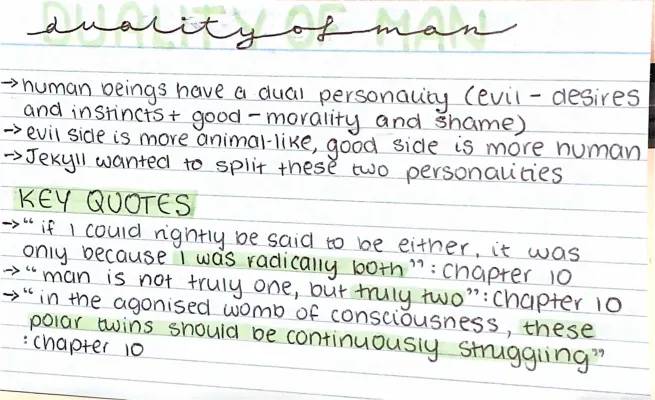 duality of man
→human beings have a dual personality (evil - desires
and instincts + good - morality and shame)
→evil side is more animal-like, good side is more human
→Jekyll wanted to split these two personalities
KEY QUOTES
→"if I could rightly be said to be either, it was
only because I was radically both": chapter 10
→"man is not truly one, but truly two": chapter 10
→"in the agonised womb of consciousness, these
polar twins should be continuously struggling"
: chapter 10